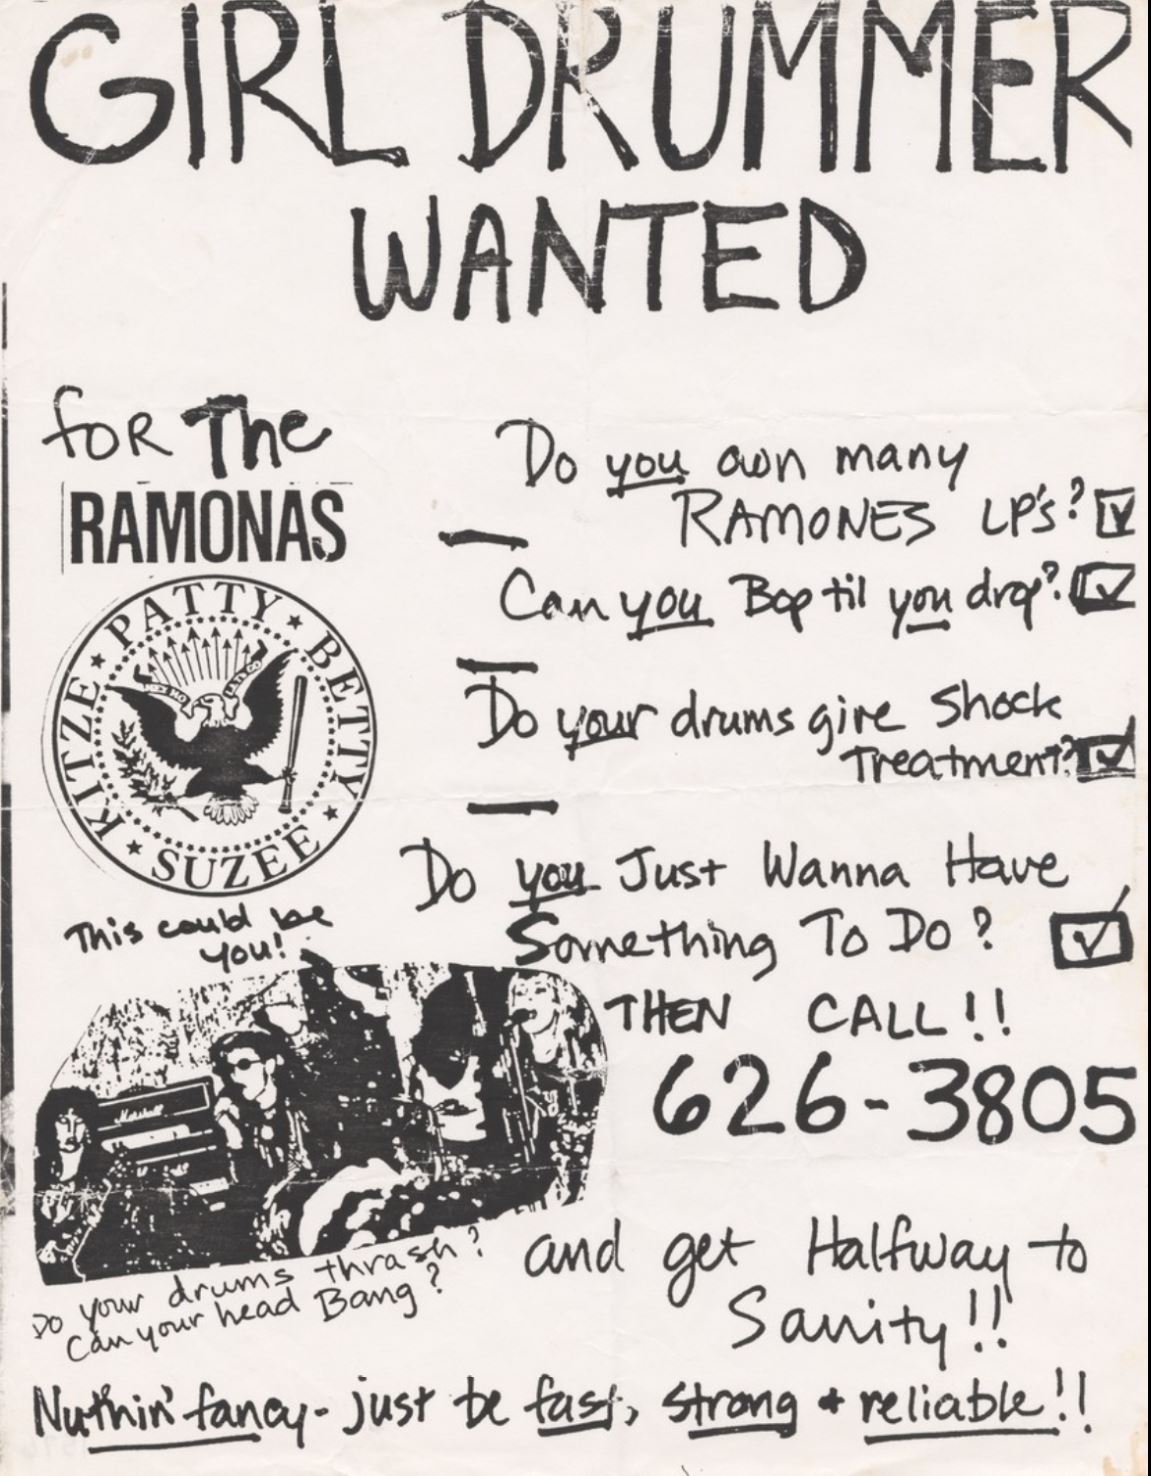 GIRL DRUMMER
WANTED
for The
RAMONAS
KITZE ★ PATTY ★ BETTY ★ SUZEE ★
This could be
you!
Marshall
Do your drums thrash?
Can your head Bang?
Do you own many
RAMONES LP's? ☑
Can you Bop til you drop? ☑
Do your drums give Shock
Treatment? ☑
Do you Just Wanna Have
Something To Do? ☑
THEN CALL!!
626-3805
and get Halfway to
Sanity!!
Nuthin' fancy - just be fast, strong + reliable!!